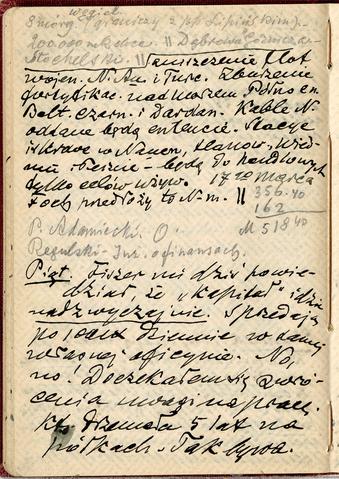 węgiel
8 morg. (graniczy z
200.000 chce. || Dąbrowa Górnicza
Stochelski. || Zaniszczenie flot
wojen. N. Au i Turc. Zburzenie
fortyfikac. nad morzem Półnoen.
Balt. Czarn. i Dardan. Kable N.
oddane będą entencie. Stacye
iskrowe w Nauen, Hanow. Wied-
niu i będą do handlowych
tylko celów używ. 17go marca
Foch przedłoży to N-m. || 356.40
162
M 518 40
P. Adamiecki. O.
Regulski - Inż. o finansach.
Piąt. Fiszer mi dziś powie-
dział, że „Kapitał" idzie
nadzwyczajnie. Sprzedają
po 10 dziennie w samej
własnej oficynie. No,
no! Doczekałem się zwró-
cenia uwagi na pracę,
kt. drzemała 5 lat na
półkach. Tak bywa.